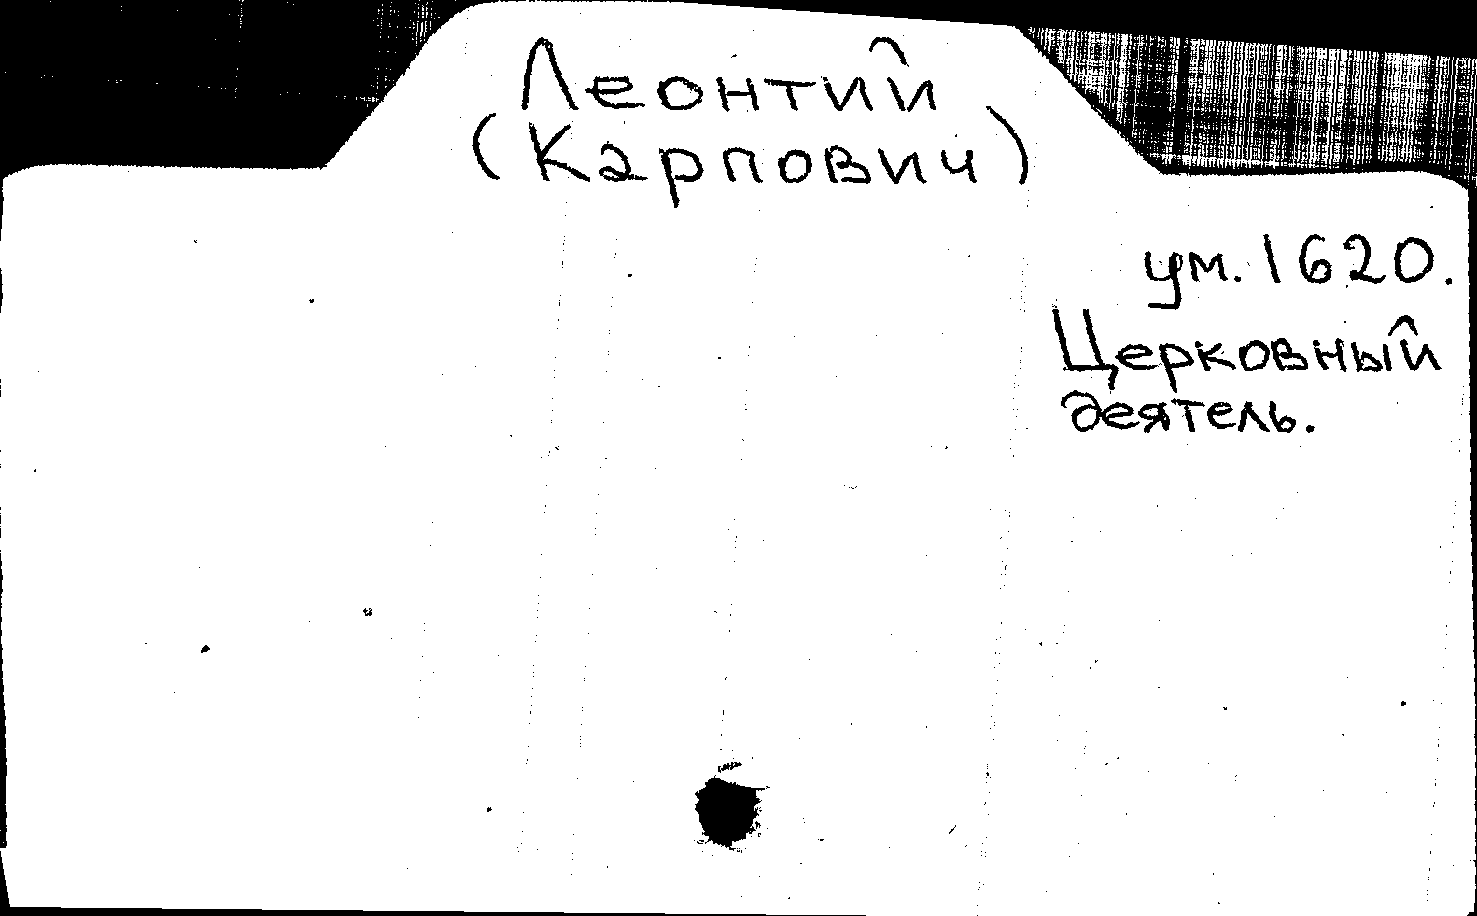 Леонтий
(Карпович)
ум. 1620.
Церковный
деятель.